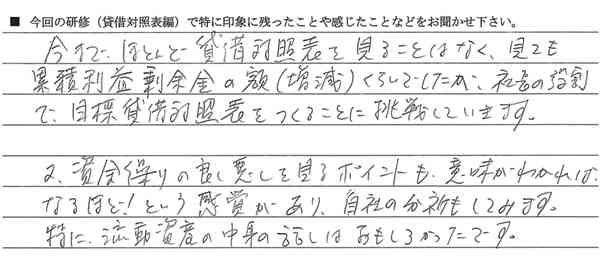 ■ 今回の研修（貸借対照表編）で特に印象に残ったことや感じたことなどをお聞かせ下さい。
今まで、ほとんど貸借対照表を見ることはなく、見ても
累積利益剰余金の額（増減）くらいでしたが、社長の役割
で、目標貸借対照表をつくることに挑戦しています。
又、資金繰りの良し悪しを見るポイントも、意味がわかれば、
なるほど！という感覚があり、自社の分析もしてみます。
特に、流動資産の中身の話しはおもしろかったです。